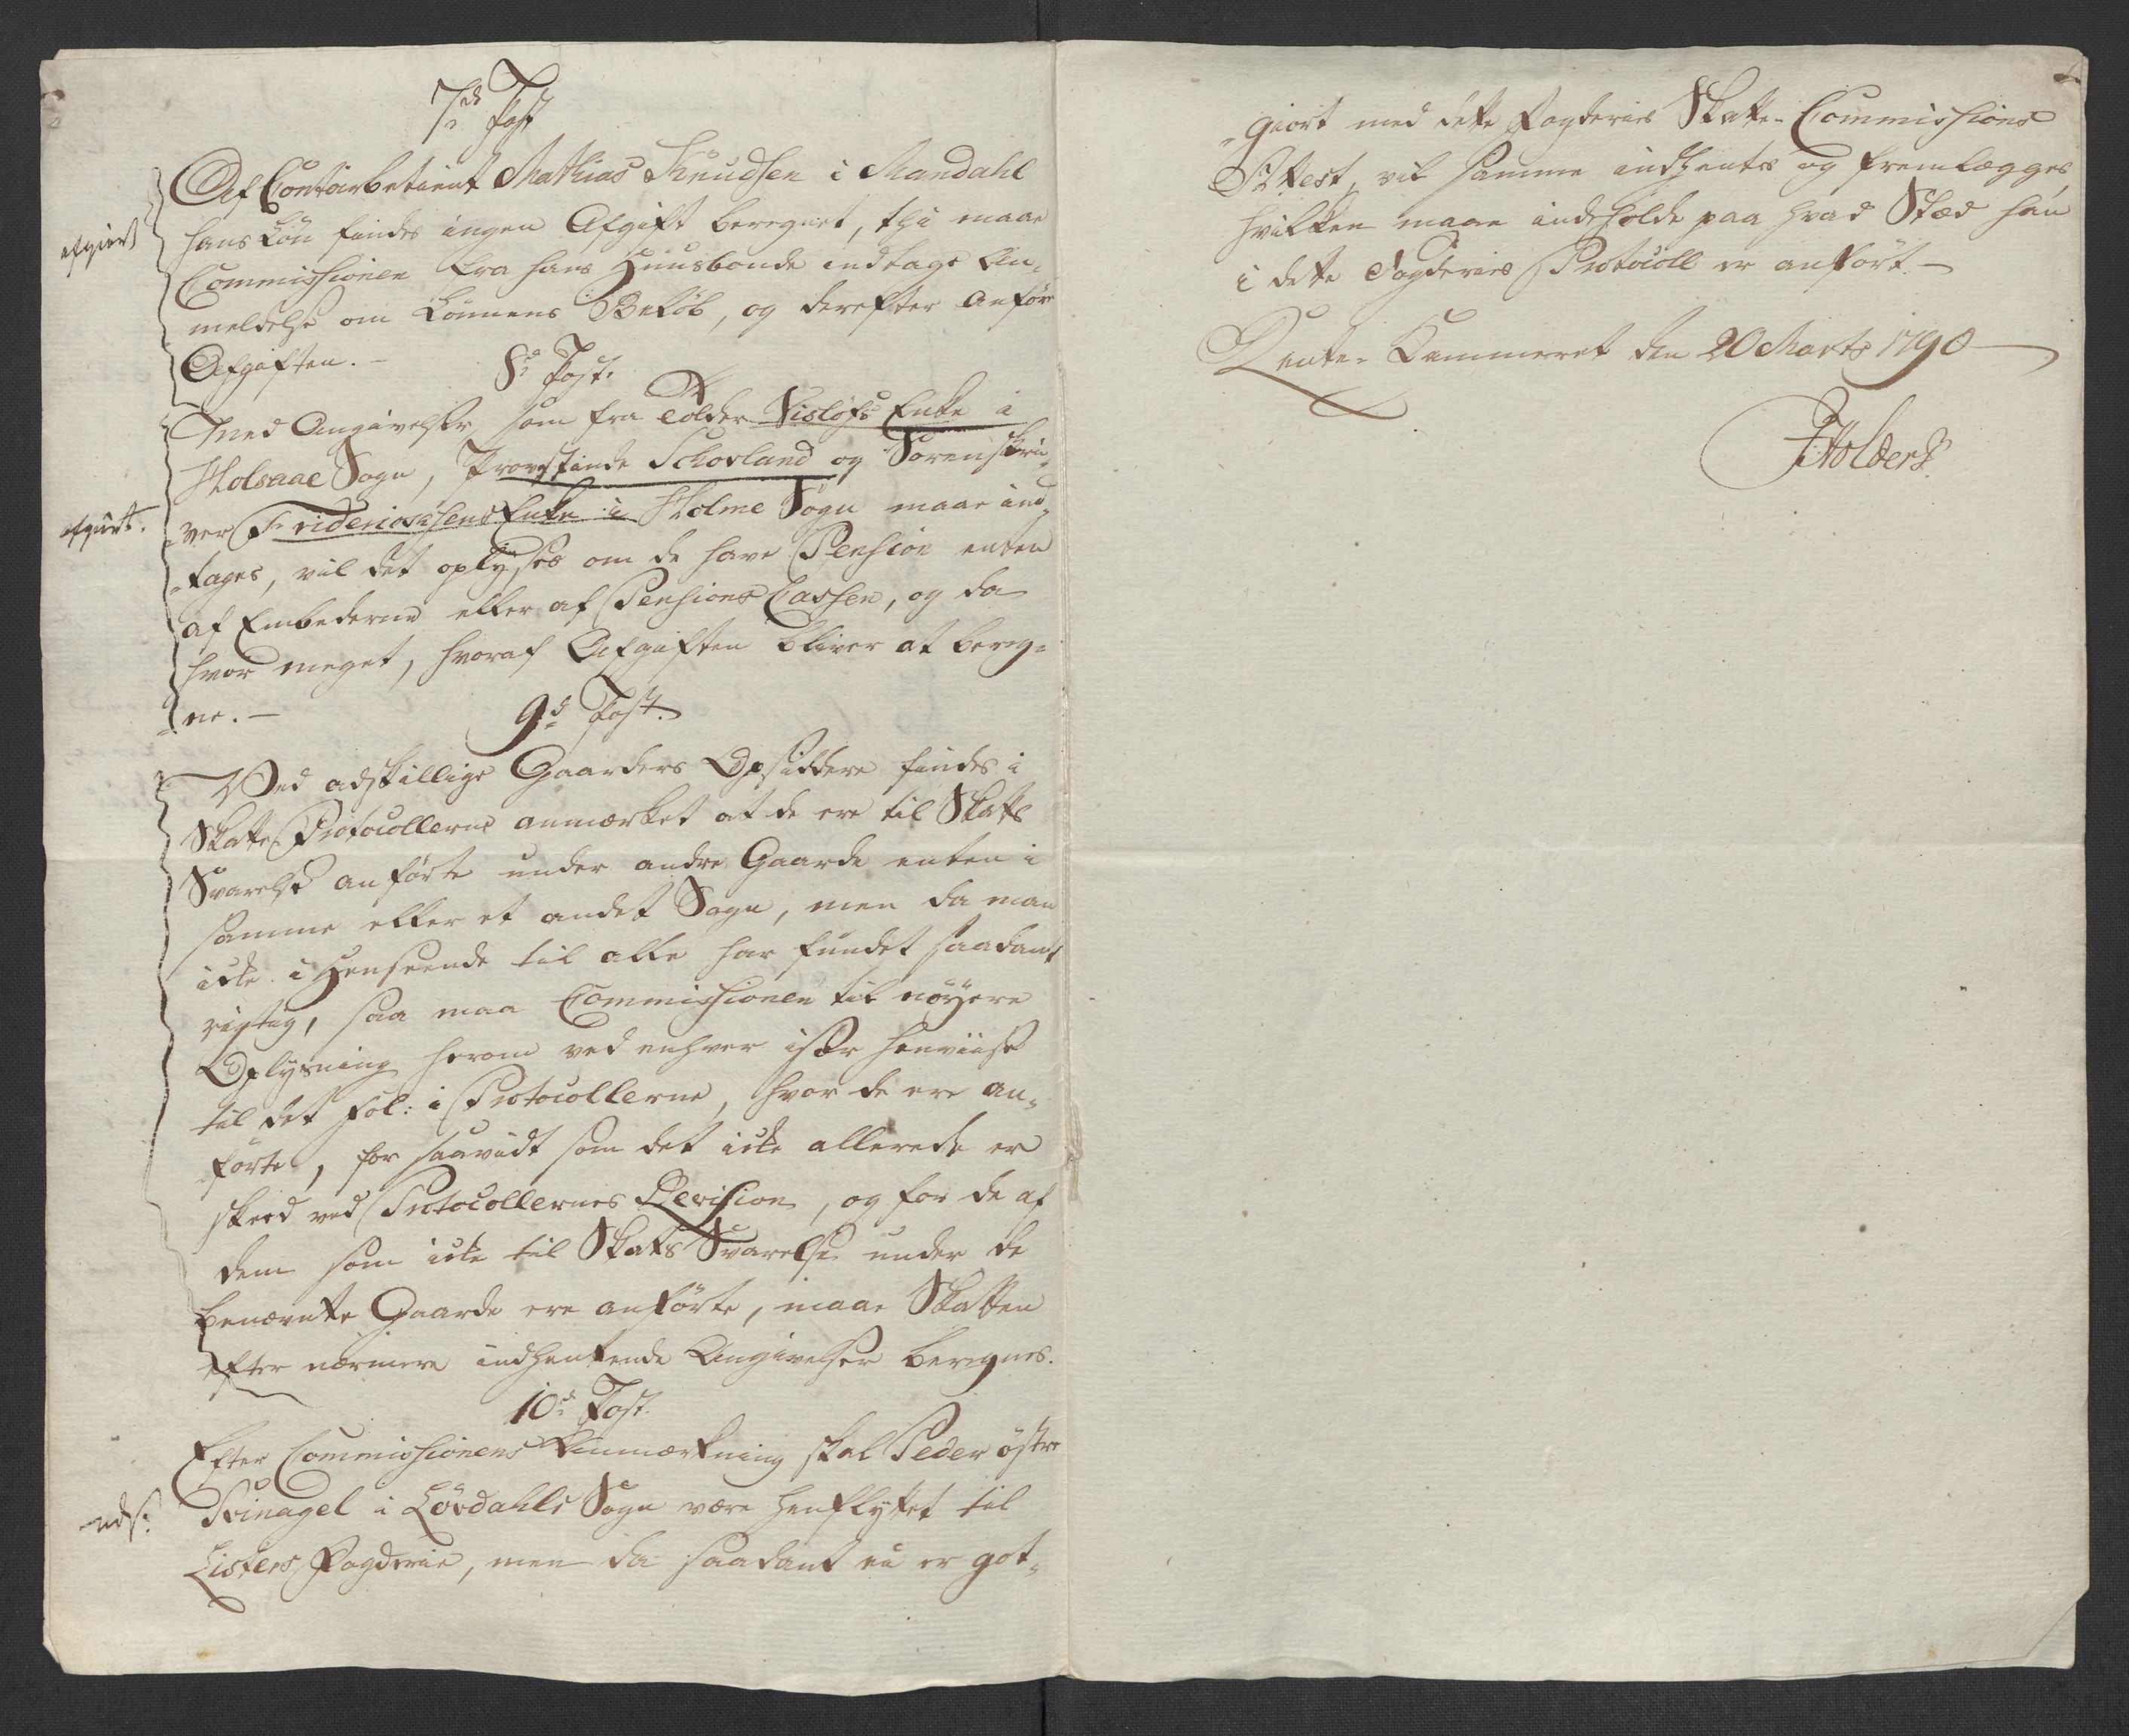 7de Post
Af Contoirbetient Mathias Knudsen i Mandahl
hans Løn findes ingen Afgift beregnet, thi maae
afgiort
Commissionen fra hans Huusbonde indtage An-
meldelse om Lønnens Beløb, og derefter anføre
Afgiften. -
8de Post.
Med Angivelser som fra Tolder Visløfs Enke i
Holsaae Sogn, Provstinde Schovland og Sorenskri-
ver Friderichsens Enke i Holme Sogn maae ind-
afgiort.
tages, vil det oplyses om de have Pension enten
af Embederne eller af Pensions Cassen, og da
hvor meget, hvoraf Afgiften bliver at bereg-
ne. -
9de Post.
Ved adskillige Gaarders Opsiddere findes i
Skatte Protocollerne anmærket at de ere til Skatts
Svarelse anførte under andre Gaarde enten i
samme eller et andet Sogn, men da man
icke i Henseende til alle har fundet saadant
rigtig, saa maa Commissionen til nøyere
Oplysning herom ved enhver især henviise
til det Fol: i Protocollerne, hvor de ere an-
førte, for saavidt som det icke allerede er
skeed ved Protocollernes Revision, og for de af
dem som icke til Skats Svarelse under de
benævnte Gaarde ere anførte, maae Skatten
efter nærmere indhentende Angivelser beregnes.
10de Post.
Efter Commissionens Anmærkning skal Peder østre
Svinagel i Løvdahls Sogn være henflyttet til
ads:
Listers Fogderie, men da saadant ei er got-
giort med dette Fogderies Skatte-Commissions
Attest, vil samme indhentes og fremlægges,
hvilken maae indeholde paa hvad Stæd han
i dette Fogderies Protocoll er anført. -
Rente-Kammeret den 20 Marts 1790
Holdert